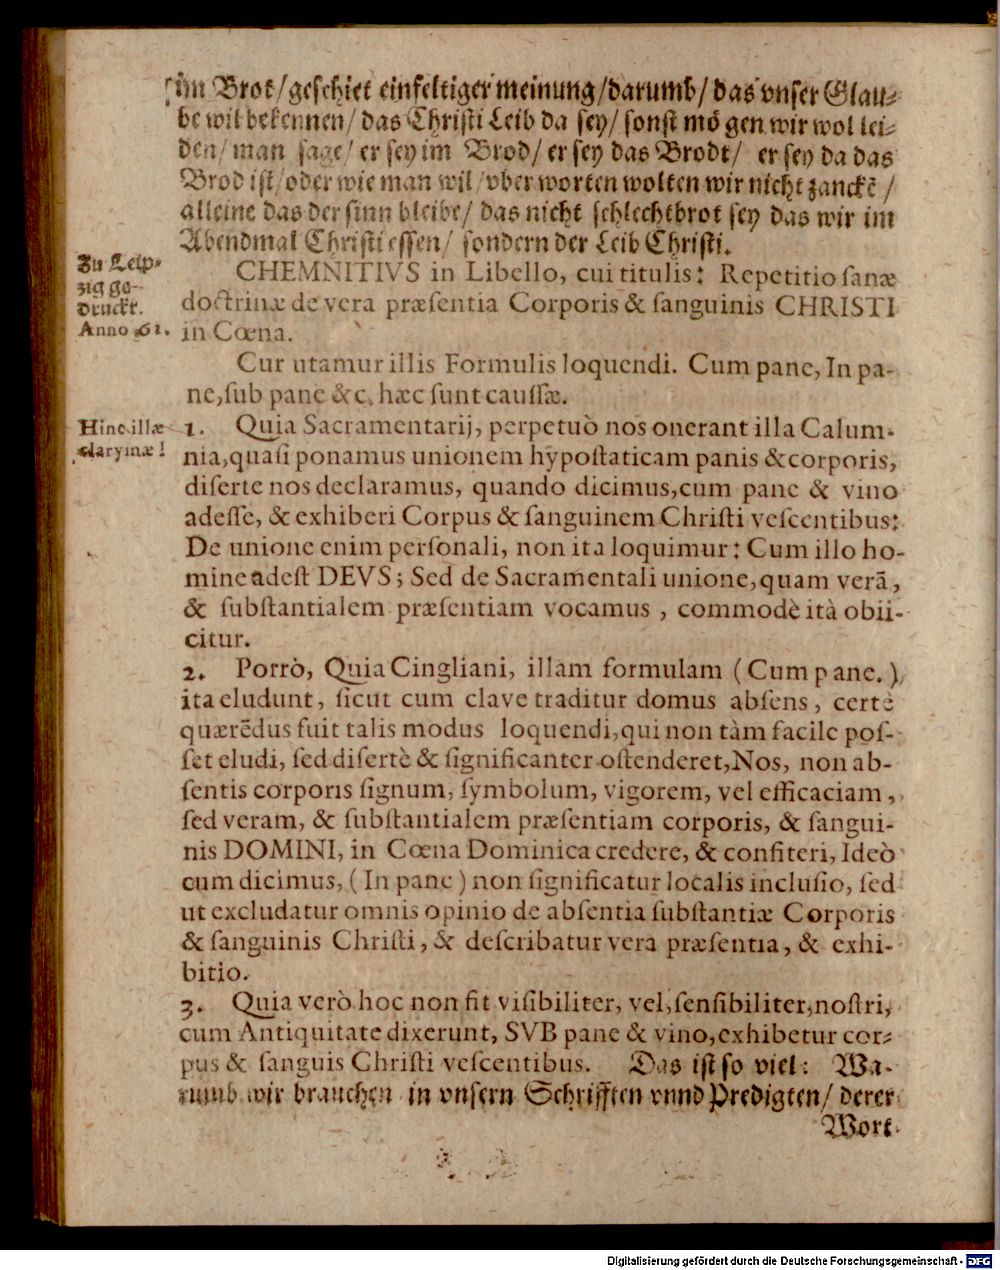 im Brot/geschiet einfeltiger meinung/darumb/ das vnser Glau⸗
be wil bekennen/ das Christi Leib da sey/ sonst mögen wir wol lei⸗
den/ man sage/ er sey im Brod/ er sey das Brodt/ er sey da das
Brod ist/oder wie man wil/vber worten wolten wir nicht zanckē /
alleine das der sinn bleibe/ das nicht schlechtbrot sey das wir im
Abendmal Christi essen/ sondern der Leib Christi.
Zu Leip⸗
zig ge-
druckt.
Anno 61.
CHEMNITIVS in Libello, cui titulis: Repetitio sanæ
doctrinæ de vera præsentia Corporis & sanguinis CHRISTI
in Cœna.
Cur utamur illis Formulis loquendi. Cum pane, In pa-
ne, sub pane &c. hæc sunt caussæ.
Hinc illæ
laryme!
1. Quia Sacramentarij, perpetuò nos onerant illa Calum-
nia, quasi ponamus unionem hypostaticam panis & corporis,
diserte nos declaramus, quando dicimus, cum pane & vino
adesse, & exhiberi Corpus & sanguinem Christi vescentibus:
De unione enim personali, non ita loquimur: Cum illo ho-
mine adest DEVS; Sed de Sacramentali unione, quam verā,
& substantialem præsentiam vocamus, commodè ità obii-
citur.
2. Porrò, Quia Cingliani, illam formulam (Cum pane.)
ita eludunt, sicut cum clave traditur domus absens, certè
quærēdus fuit talis modus loquendi, qui non tàm facile pos-
set eludi, sed disertè & significanter ostenderet, Nos, non ab-
sentis corporis signum, symbolum, vigorem, vel efficaciam,
sed veram, & substantialem præsentiam corporis, & sangui-
nis DOMINI, in Cœna Dominica credere, & confiteri, Ideò
cum dicimus, (In pane) non significatur localis inclusio, sed
ut excludatur omnis opinio de absentia substantiæ Corporis
& sanguinis Christi, & describatur vera præsentia, & exhi-
bitio.
3. Quia verò hoc non fit visibiliter, vel, sensibiliter, nostri,
cum Antiquitate dixerunt, SVB pane & vino, exhibetur cor⸗
pus & sanguis Christi vescentibus. Das ist so viel: Wa-
rumb wir brauchen in vnsern Schrifften vnnd Predigten/ derer
Wort
Digitalisierung gefördert durch die Deutsche Forschungsgemeinschaft - DFG